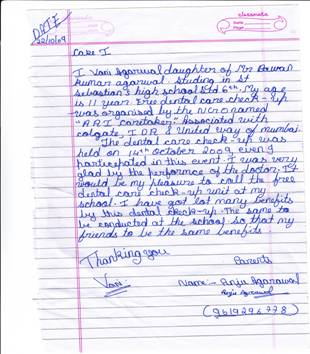 classmate
Date
Page
DATE
22/10/09
Case I
I Vani Agarwal daughter of Mr Pawan
kumar agarwal. studing in st
Sebastian's high school Std 6th. My age
is 11 year. Free dental care check-up
was organised by the NGO named
"A R I Caretaker". Associated with
colgate, I D A & United way of mumbai.
The dental care check-up was
held on 14th October 2009, even I
participated in this event. I was very
glad by the performce of the doctor. It
would be my pleasure to call the free
dental care check-up unit at my
school. I have got lot many benefits
by this dental check-up. The same to
be conducted at the school so that my
friends to be the same benefits.
Thanking you
Parents
Vani
Name:- Anju Agarawal
Anju Agrawal
(9619294778)